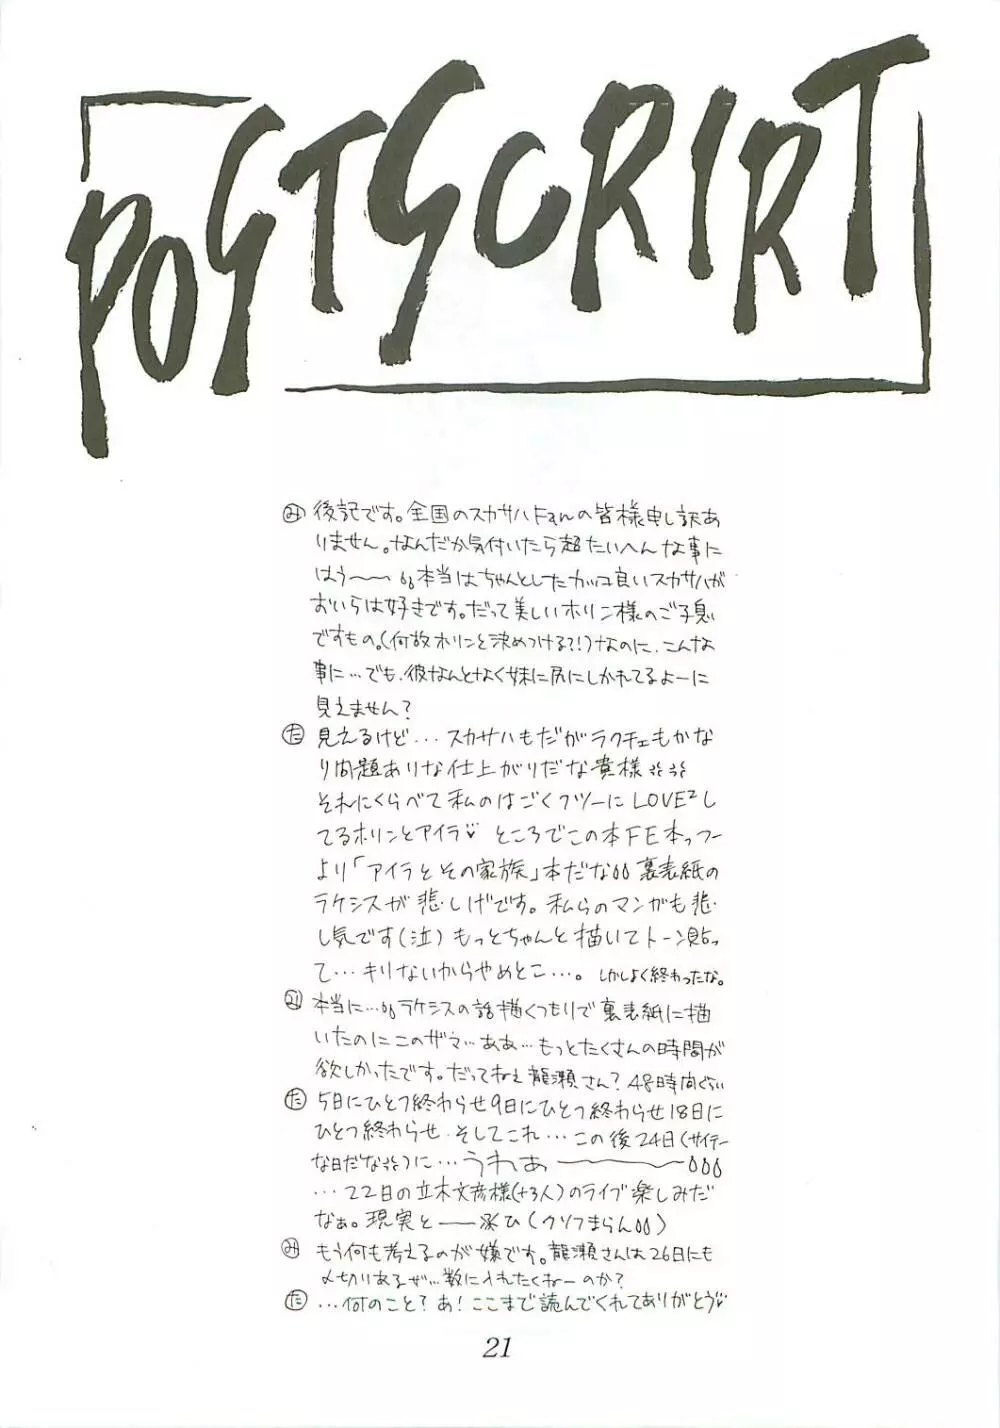 POSTSCRIPT
み 後記です。全国のスカサハFanの皆様申し訳あ
りません。なんだか気付いたら超たいへんな事に
はう〜〜 本当はちゃんとしたカッコ良いスカサハが
おいらは好きです。だって美しいホリン様のご子息
ですもの。(何故ホリンと決めつける?!)なのに、こんな
事に…でも、彼なんとなく妹に尻にしかれてるよーに
見えません?
た 見えるけど…スカサハもだがラクチェもかな
り問題ありな仕上がりだな貴様
それにくらべて私のはごくフツーにLOVE²し
てるホリンとアイラ♡ ところでこの本FE本っつー
より「アイラとその家族」本だな 裏表紙の
ラケシスが悲しげです。私らのマンガも悲
し気です(泣)もっとちゃんと描いてトーン貼っ
て…キリないからやめとこ…。しかしよく終わったな。
み 本当に…ラケシスの話描くつもりで裏表紙に描
いたのにこのザマ…ああ…もっとたくさんの時間が
欲しかったです。だってねぇ龍瀬さん?48時間ぐらい
た 5日にひとつ終わらせ9日にひとつ終わらせ18日に
ひとつ終わらせ、そしてこれ…この後24日(サイテー
な日だな)に…うわぁ〜〜
…22日の立木文彦様(+3人)のライブ楽しみだ
なぁ。現実とーひ(クソつまらん)
み もう何も考えるのが嫌です。龍瀬さんは26日にも
〆切りあるぜ…数に入れたくねーのか?
た …何のこと?あ!ここまで読んでくれてありがとう♡
21